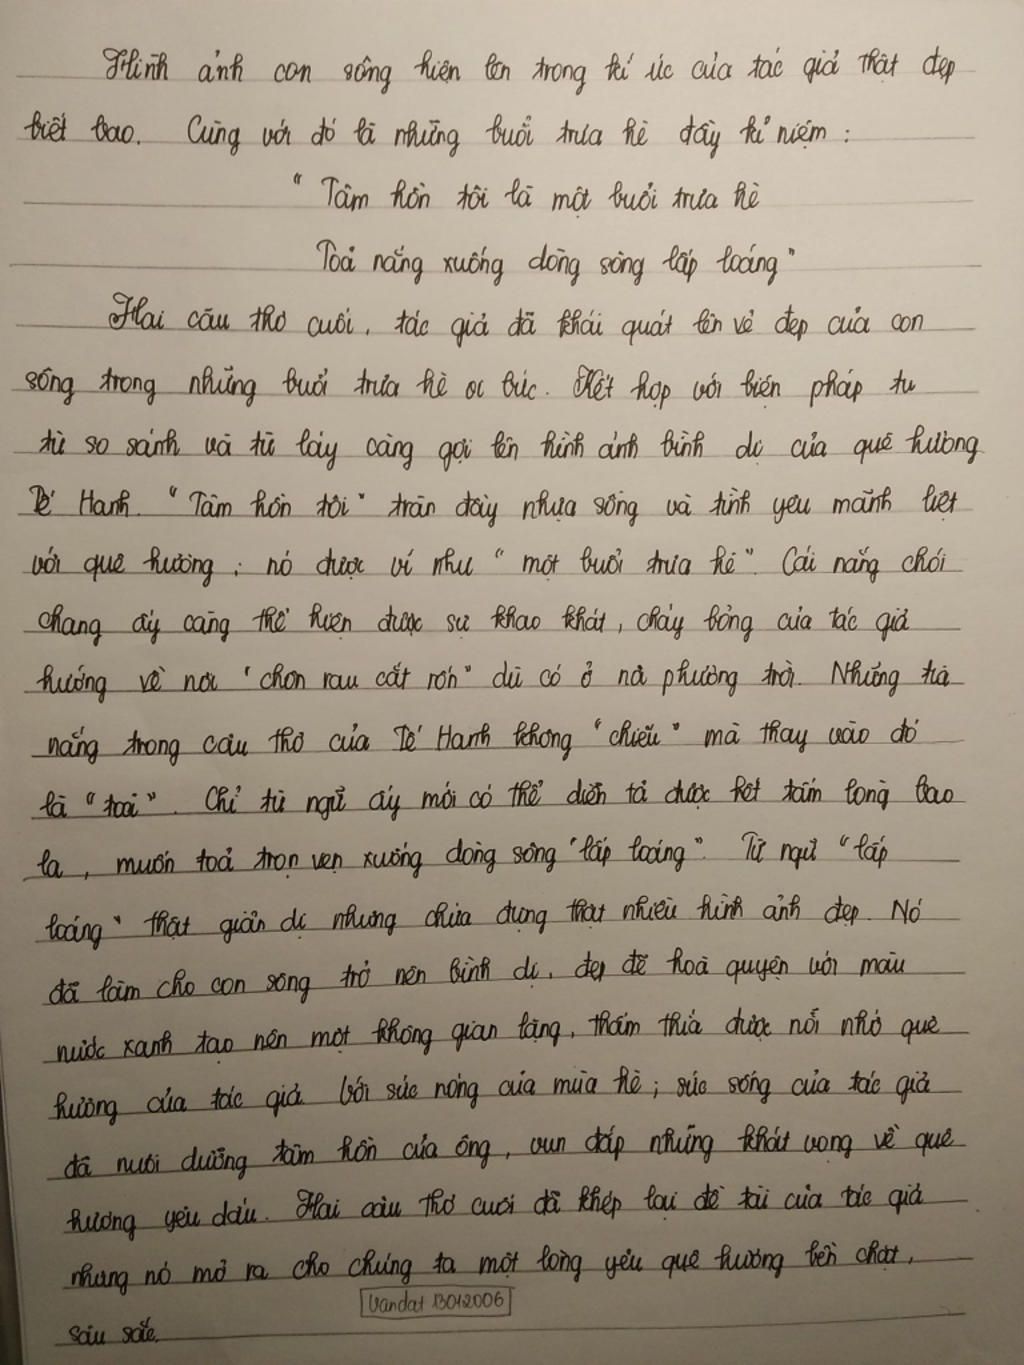 Hình ảnh con sông hiện lên trong kí ức của tác giả thật đẹp
biết bao. Cùng với đó là những buổi trưa hè đầy kỉ niệm :
" Tâm hồn tôi là một buổi trưa hè
Toả nắng xuống dòng sông lấp loáng "
Hai câu thơ cuối, tác giả đã khái quát lên vẻ đẹp của con
sông trong những buổi trưa hè oi bức. Kết hợp với biện pháp tu
từ so sánh và từ láy càng gợi lên hình ảnh bình dị của quê hương
Tế Hanh. "Tâm hồn tôi" tràn đầy nhựa sống và tình yêu mãnh liệt
với quê hương ; nó được ví như " một buổi trưa hè". Cái nắng chói
chang ấy càng thể hiện được sự khao khát, cháy bỏng của tác giả
hướng về nơi "chôn rau cắt rốn" dù có ở nơi phương trời. Những tia
nắng trong câu thơ của Tế Hanh không "chiếu" mà thay vào đó
là "toả". Chỉ từ ngữ ấy mới có thể diễn tả được hết tấm lòng bao
la , muốn toả trọn vẹn xuống dòng sông "lấp loáng". Từ ngữ "lấp
loáng" thật giản dị nhưng chứa đựng thật nhiều hình ảnh đẹp. Nó
đã làm cho con sông trở nên bình dị, đẹp đẽ hoà quyện với màu
nước xanh tạo nên một không gian lặng, thấm thía được nỗi nhớ quê
hương của tác giả. Với sức nóng của mùa hè ; sức sống của tác giả
đã nuôi dưỡng tâm hồn của ông, vun đắp những khát vọng về quê
hương yêu dấu. Hai câu thơ cuối đã khép lại đề tài của tác giả
nhưng nó mở ra cho chúng ta một lòng yêu quê hương bền chặt,
sâu sắc.
Vandat 13012006